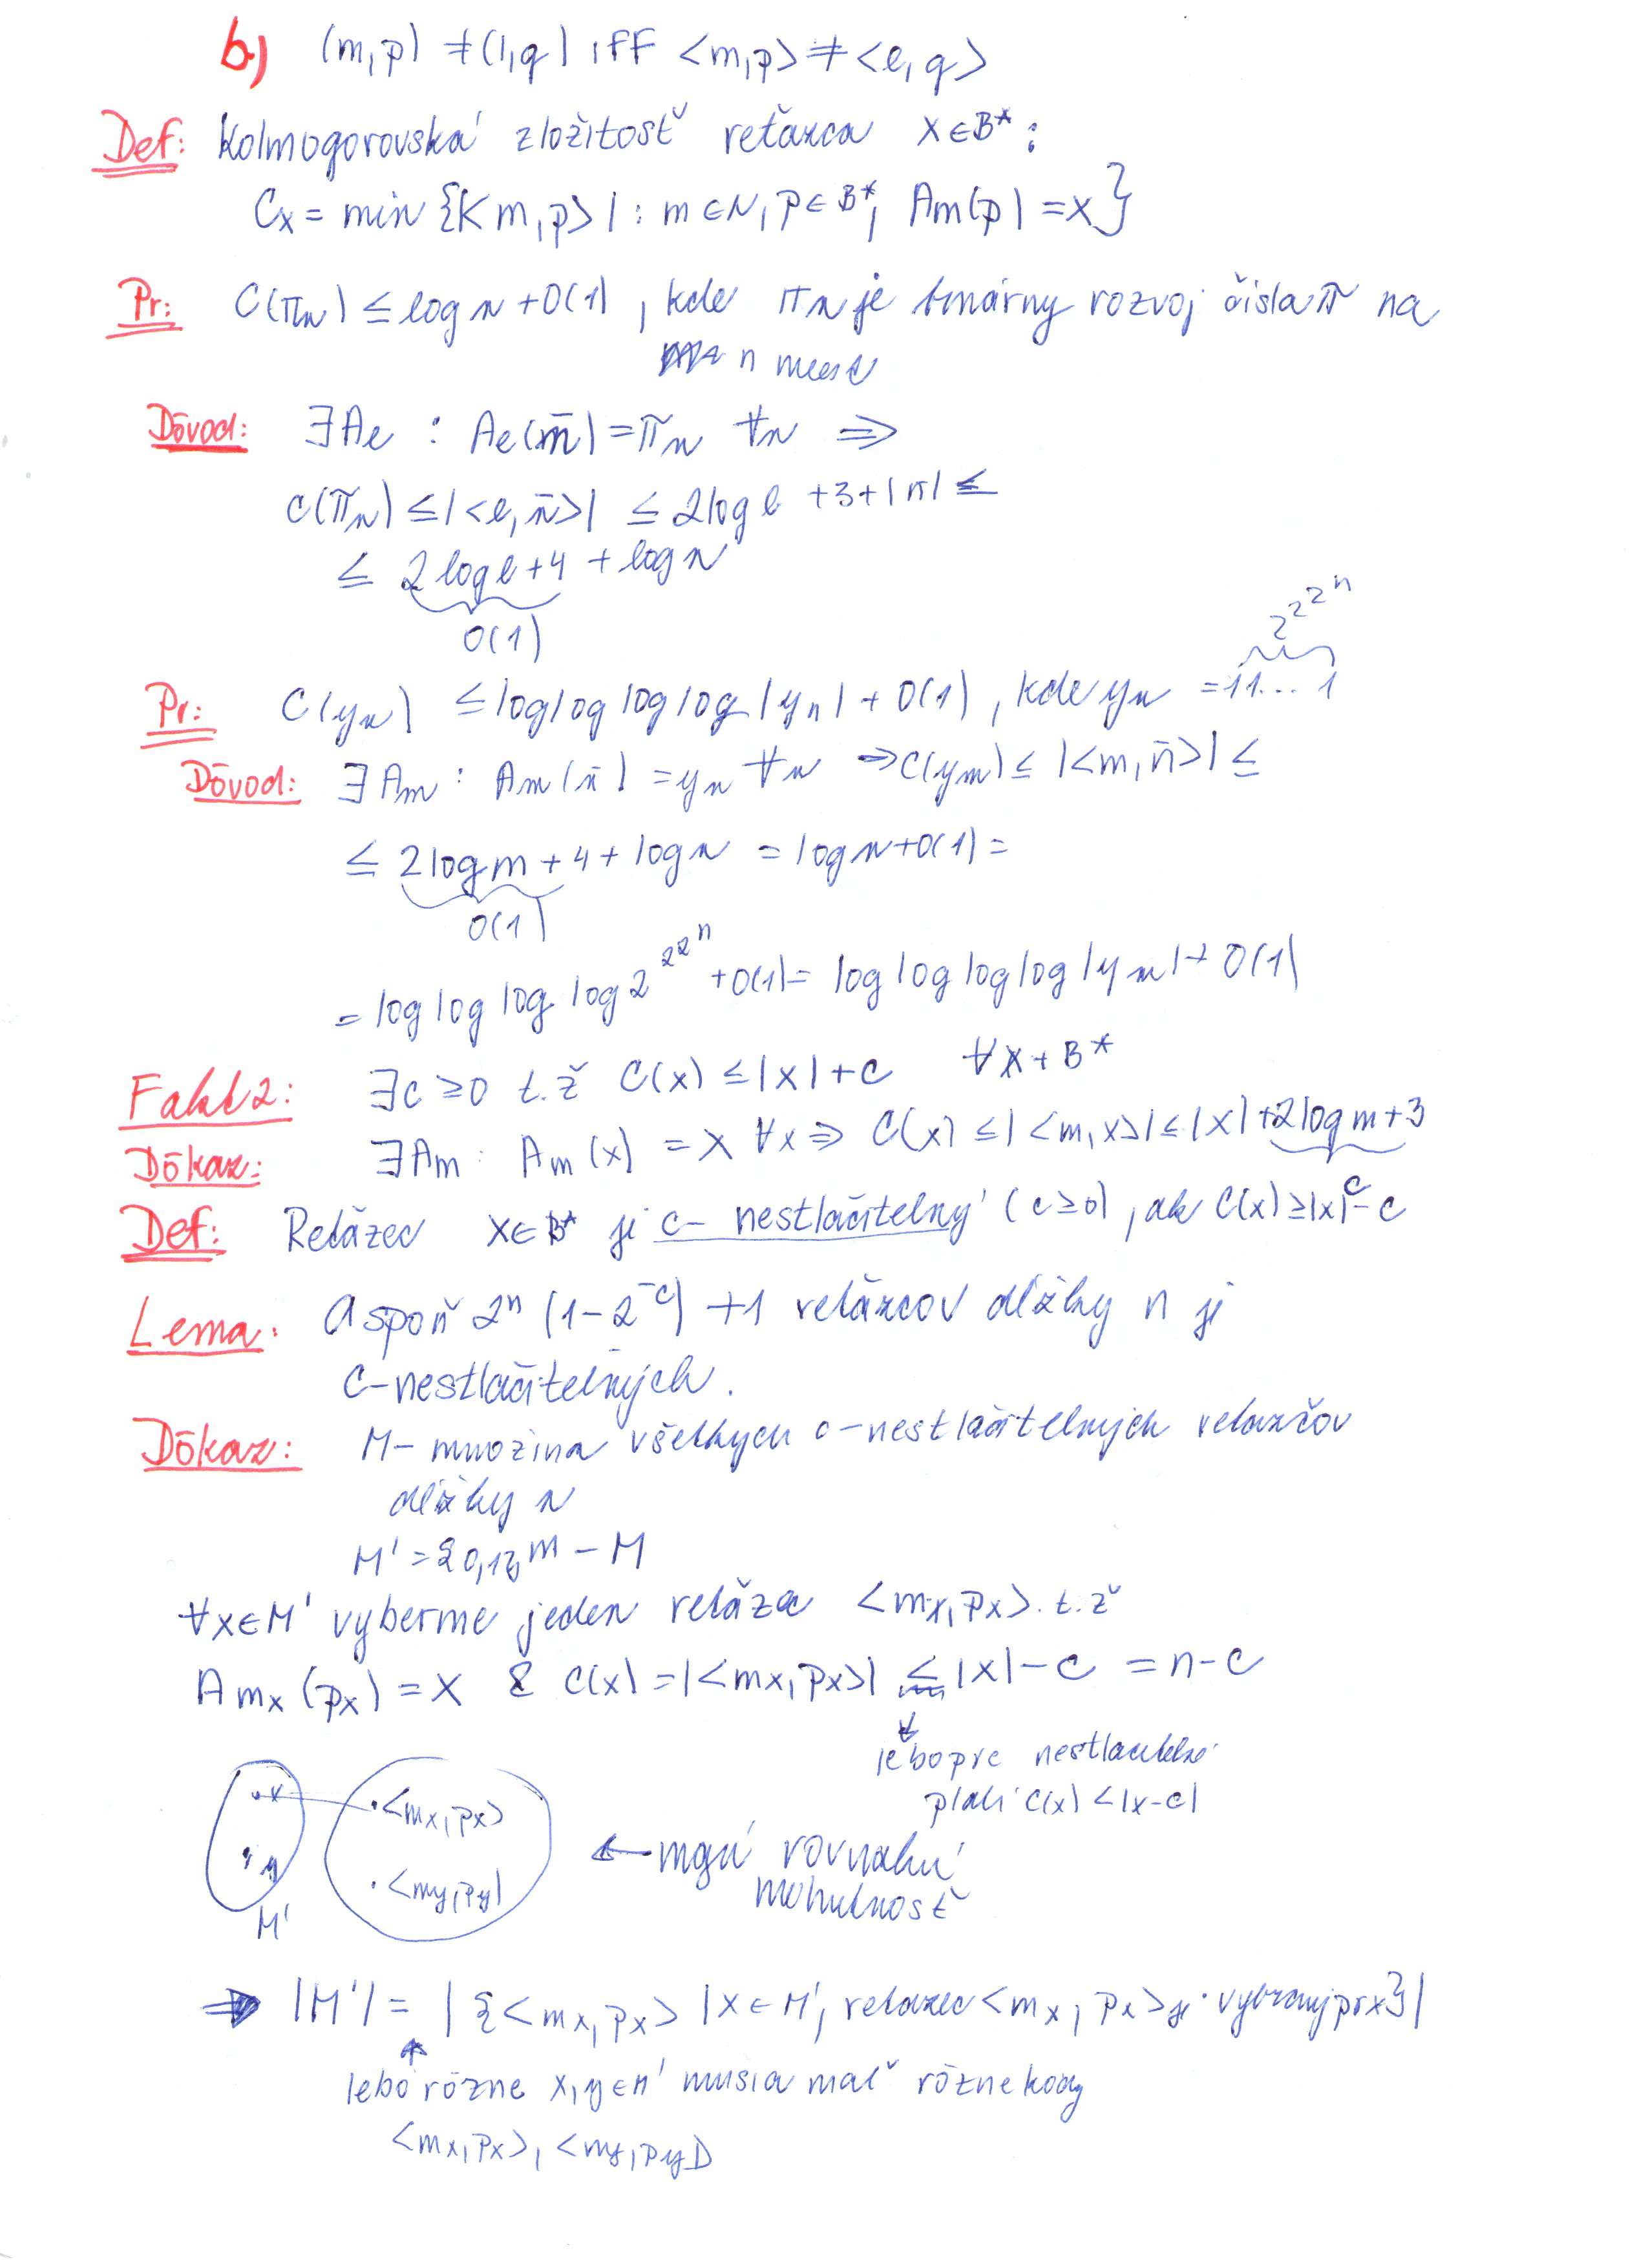 b) (m,p) ≠ (l,q) iFF <m,p> ≠ <l,q>
Def: Kolmogorovská zložitosť reťazca x∈B*:
Cx = min {|<m,p>| : m∈N, p∈B*, Am(p) = x}
Pr: C(πn) ≤ log n + O(1), kde πn je binárny rozvoj čísla π na
n miest
Dôvod: ∃Ae : Ae(n̄) = πn ∀n ⇒
C(πn) ≤ |<l,n̄>| ≤ 2log l + 3 + |n̄| ≤
≤ 2log l + 4 + log n
O(1)
2^2^2^n
Pr: C(yn) ≤ log log log log |yn| + O(1), kde yn = 11...1
Dôvod: ∃Am : Am(n̄) = yn ∀n ⇒ C(yn) ≤ |<m,n̄>| ≤
≤ 2log m + 4 + log n = log n + O(1) =
O(1)
= log log log log 2^2^2^n + O(1) = log log log log |yn| + O(1)
Fakt 2: ∃c ≥ 0 t.ž C(x) ≤ |x| + c ∀x + B*
Dôkaz: ∃Am : Am(x) = x ∀x ⇒ C(x) ≤ |<m,x>| ≤ |x| + 2log m + 3
c
Def: Reťazec x∈B* je c-nestlačiteľný (c≥0), ak C(x) ≥ |x| - c
Lema: Aspoň 2^n (1-2^-c) + 1 reťazcov dĺžky n je
c-nestlačiteľných.
Dôkaz: M - množina všetkých c-nestlačiteľných reťazcov
dĺžky n
M' = {0,1}^n - M
∀x∈M' vyberme jeden reťazec <mx,px> t.ž
Amx(px) = x & C(x) = |<mx,px>| ≤ |x| - c = n-c
lebo pre nestlačiteľné
platí C(x) < |x-c|
x <mx,px>
y <my,py>
M'
← majú rovnakú
mohutnosť
⇒ |M'| = |{<mx,px> | x∈M', reťazec <mx,px> je vybraný pr x}|
lebo rôzne x,y∈M' musia mať rôzne kódy
<mx,px>, <my,py>